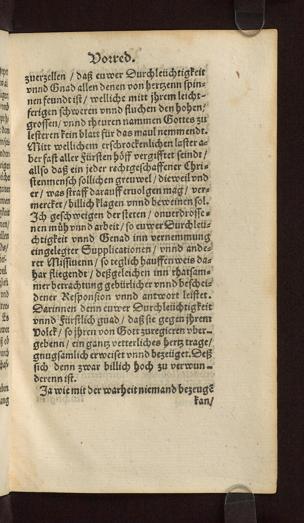 Vorred.
zuerzellen / daß euwer Durchleüchtigkeit
vnnd Gnad allen denen von hertzenn spin-
nen feundt ist / welliche mitt jhrem leicht-
ferigen schweren vnnd fluchen den hohen /
grossen / vnnd theuren nammen Gottes zu
lesteren kein blatt für das maul nemmendt.
Mitt wellichem erschrockenlichen laster a-
ber fast aller Fürsten höff vergifftet seindt /
allso daß ein jeder rechtgeschaffener Chri-
stenmensch sollichen greuwel / dieweil vnd
er / was straff darauff eruolgen mag / ver-
mercket / billich klagen vnnd beweinen sol.
Ich geschweigen der steten / onuerdrosse-
nen müh vnnd arbeit / so euwer Durchleu-
chtigkeit vnnd Genad inn vernemmung
eingelegter Supplicationen / vnnd ande-
rer Missiuenn / so teglich hauffenweis da-
har fliegendt / deßgeleichen inn rhatsam-
mer betrachtung gebürlicher vnnd beschei-
dener Responsion vnnd antwort leistet.
Darinnen denn euwer Durchleüchtigkeit
vnnd Fürstlich gnad / daß sie gegen jhrem
Volck / so jhren von Gott zuregieren vber-
gebenn / ein gantz vetterliches hertz trage /
gnugsamlich erweiset vnnd bezeüget. Deß
sich denn zwar billich hoch zu verwun-
derenn ist.
Ja wie mit der warheit niemand bezeugē
kan /